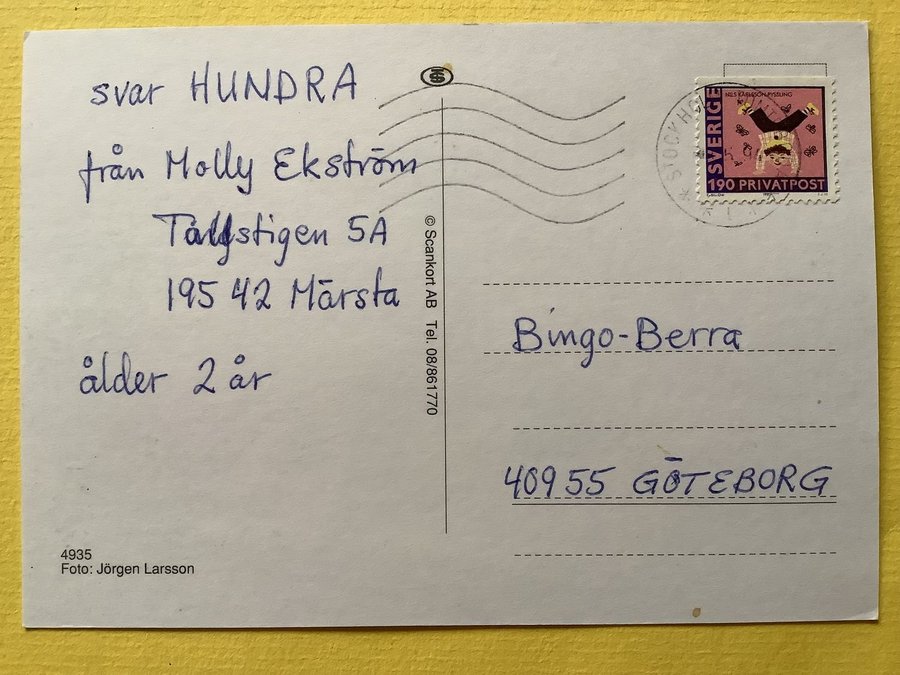 svar HUNDRA
från Molly Ekström
Tallstigen 5A
195 42 Märsta
ålder 2 år
4935
Foto: Jörgen Larsson
© Scankort AB Tel. 08/861770
NILS KARLSSON PYSSLING
SVERIGE
190 PRIVATPOST
STOCKH
Bingo-Berra
409 55 GÖTEBORG